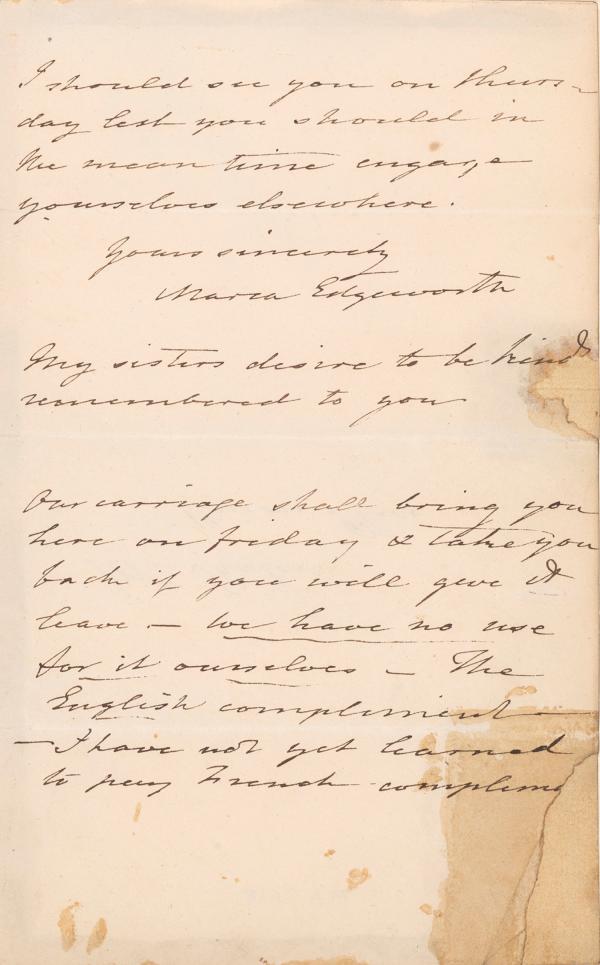 I should see you on Thurs-
day lest you should in
the mean time engage
yourselves elsewhere.
Yours sincerely
Maria Edgeworth
My sisters desire to be kind
remembered to you
Our carriage shall bring you
here on friday & take you
back if you will give it
leave – we have no use
for it ourselves – The
English compliment –
– I have not yet learned
to pay French complime